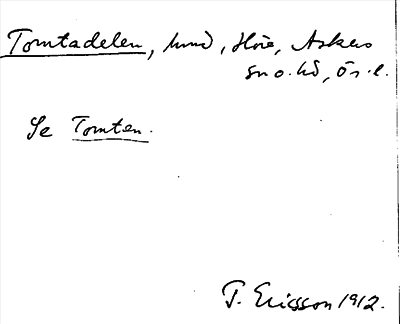 Tomtadelen, hmd, Höje, Askers
sn o. hd, Ör. l.
Se Tomten.
T. Ericsson 1912.